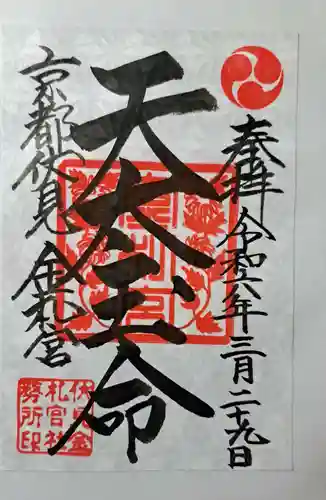 奉拝 令和六年三月二十九日
天太玉命
京都伏見 金札宮
伏見金
札宮社
務所印